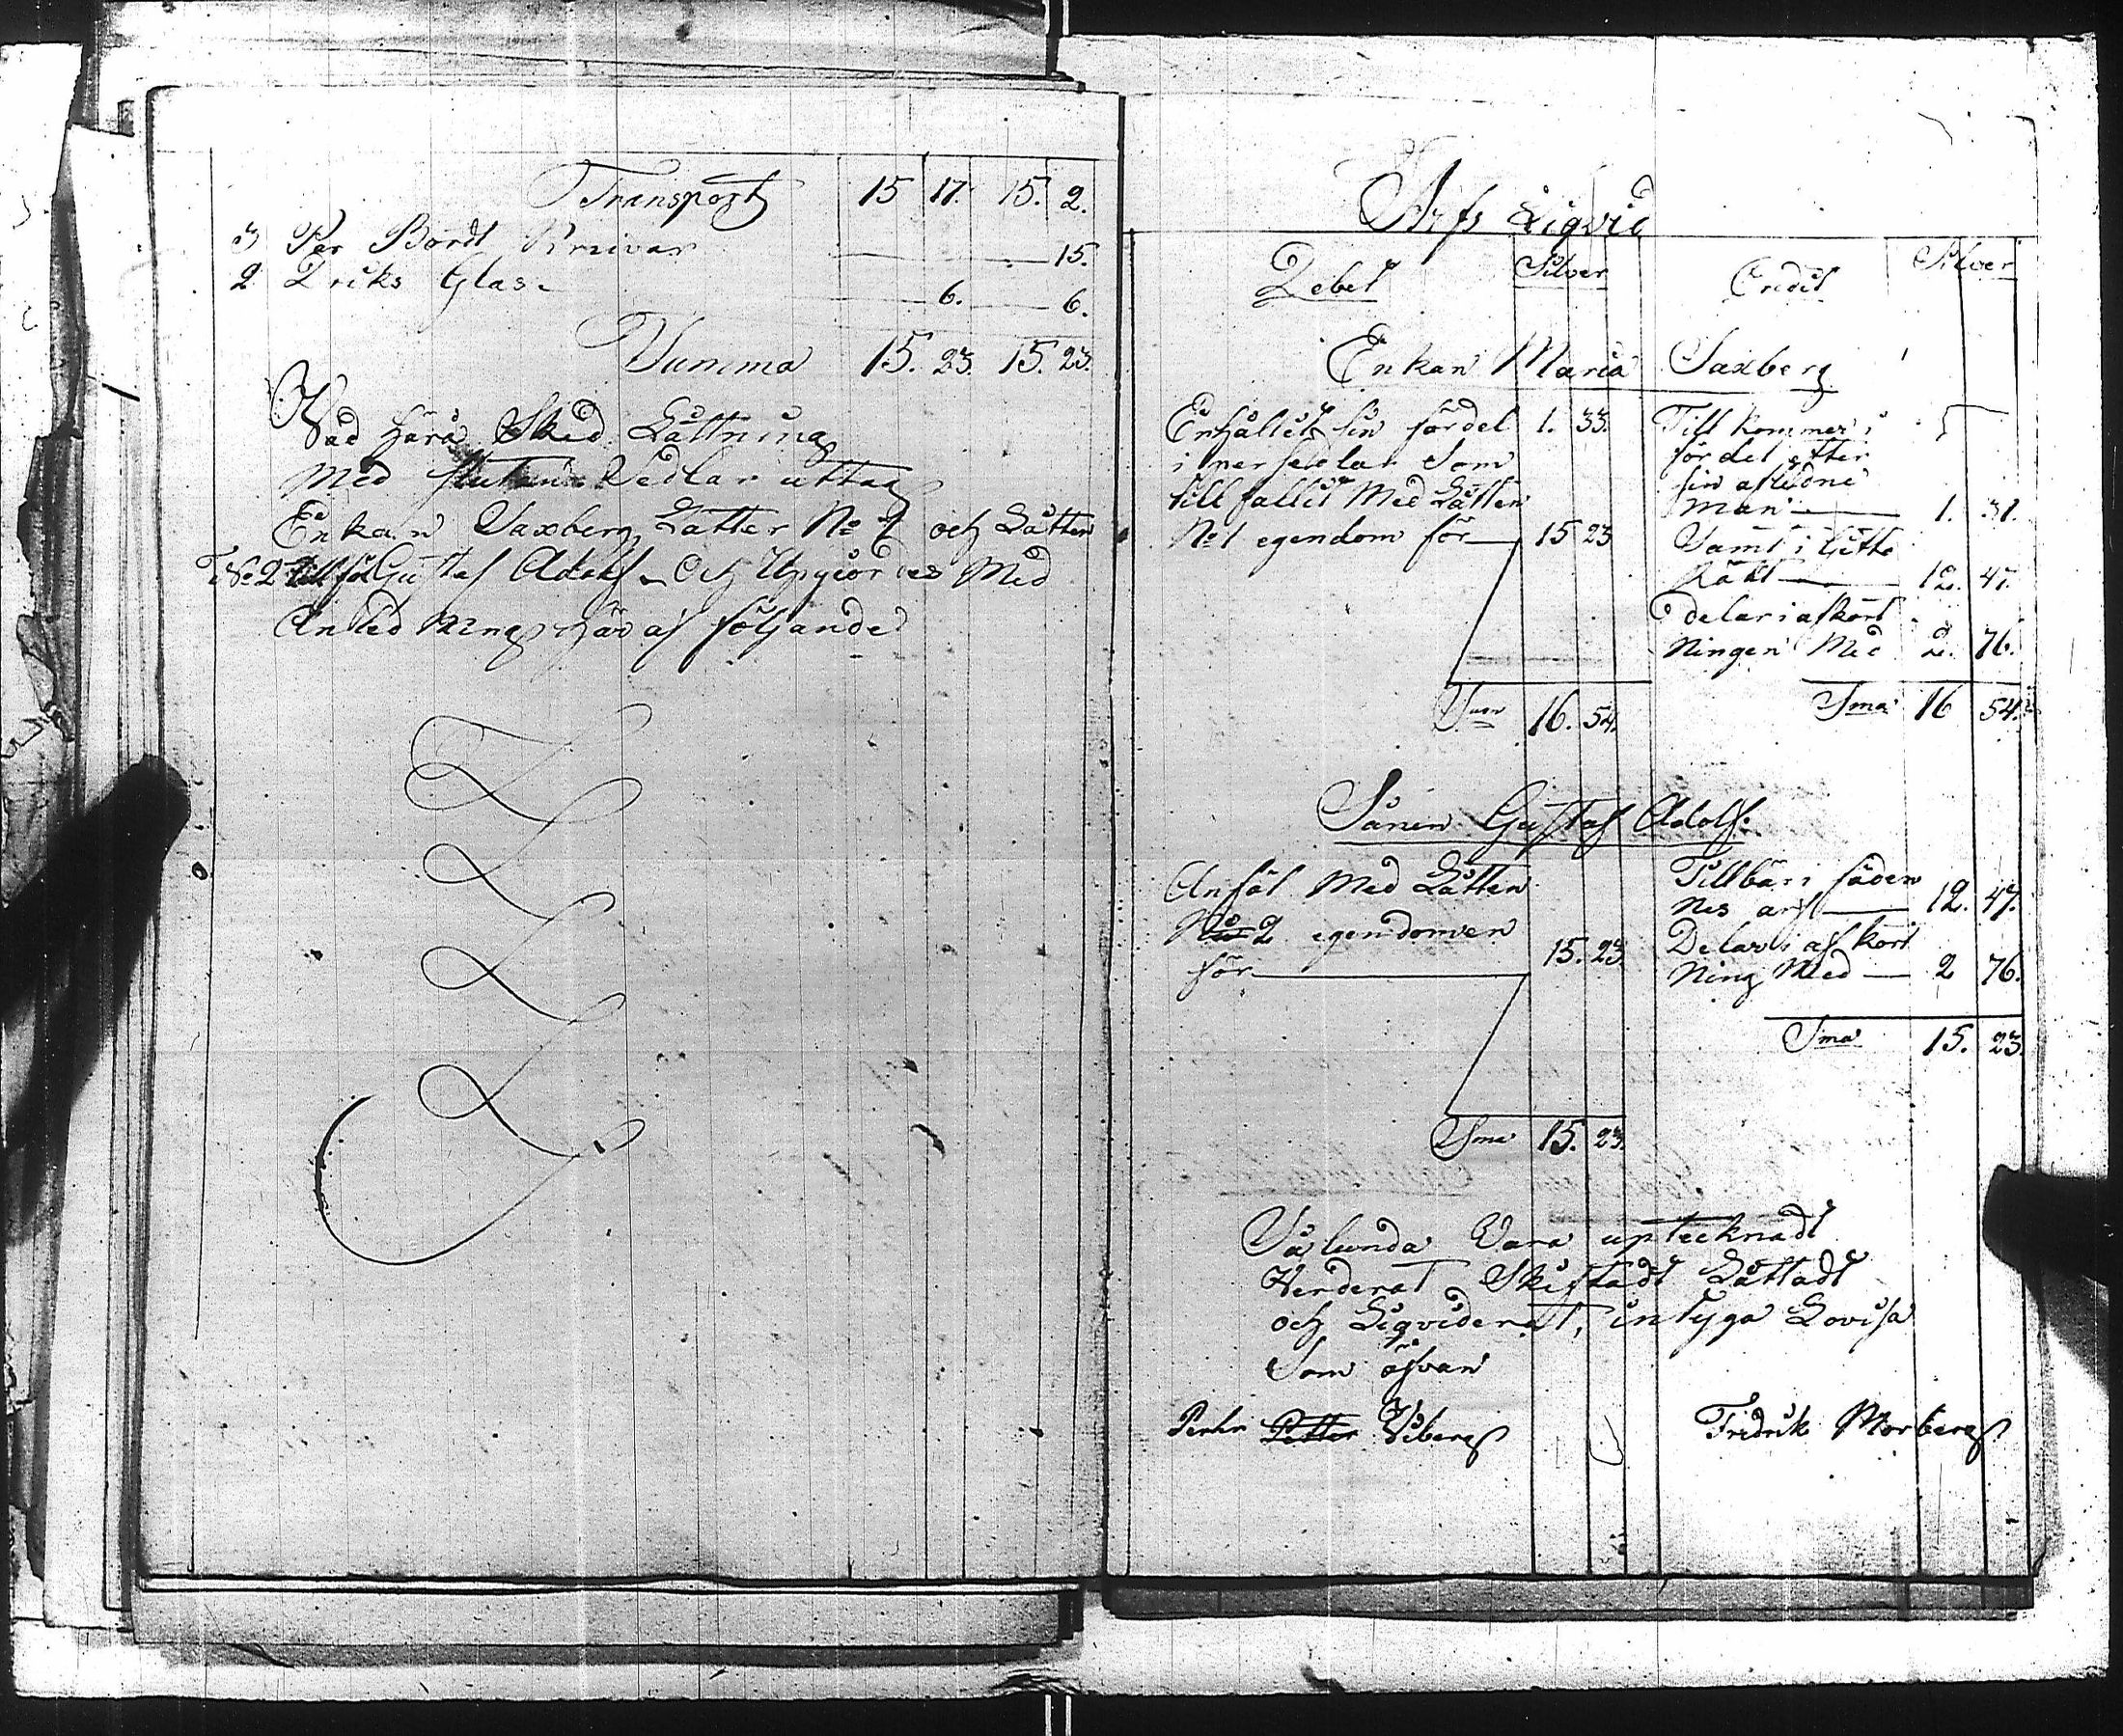 Transport 15 17. 15. 2.
3 Par Bordt Knivar 15.
2 Driks Glas 6. 6.
Summa 15. 23. 15. 23.
Vad härå Sked Låttning
Med Sedlar uttag
Enkan Saxberg Låtter No 1 och Låtten
No 2 till föl Gustaf Adolf. Och Upgiordes Med
Anledning här af följande
Arfs Liqvid
Debet Silver Credit Silver
Enkan Maria Saxberg
Enhållit sin fördel 1. 33.
i persedlar Som
till fallit Med Låtten
No 1 egendom för 15 23
Sum 16. 54.
Till kommer i
fördel efter
sin aflidne
man 1. 31.
Samt i Gifto
Rätt 12. 47.
delar i afkort
Ningen Med 2. 76.
Sma 16 54.
Sånen Gustaf Adolf.
Anfål Med Låtten
No 2 egendomen
för 15. 23.
Sma 15. 23.
Tillbär i fäder
nes arf 12. 47.
Delar i af kort
Ning Med 2 76.
Sma 15. 23.
Sålunda Vara uptecknadt
Verderat Skiftadt Låttadt
och Liqviderat, intyga Lovisa
Som ofvan
Petter Viberg
Fredrik Morberg